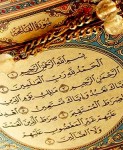 سُورَةُ الفَاتِحَةِ
بِسْمِ اللَّهِ الرَّحْمَٰنِ الرَّحِيمِ
الْحَمْدُ لِلَّهِ رَبِّ الْعَٰلَمِينَ
الرَّحْمَٰنِ الرَّحِيمِ مَٰلِكِ يَوْمِ الدِّينِ
إِيَّاكَ نَعْبُدُ وَإِيَّاكَ نَسْتَعِينُ اهْدِنَا
الصِّرَٰطَ الْمُسْتَقِيمَ صِرَٰطَ الَّذِينَ أَنْعَمْتَ
عَلَيْهِمْ غَيْرِ الْمَغْضُوبِ عَلَيْهِمْ
وَلَا الضَّالِّينَ